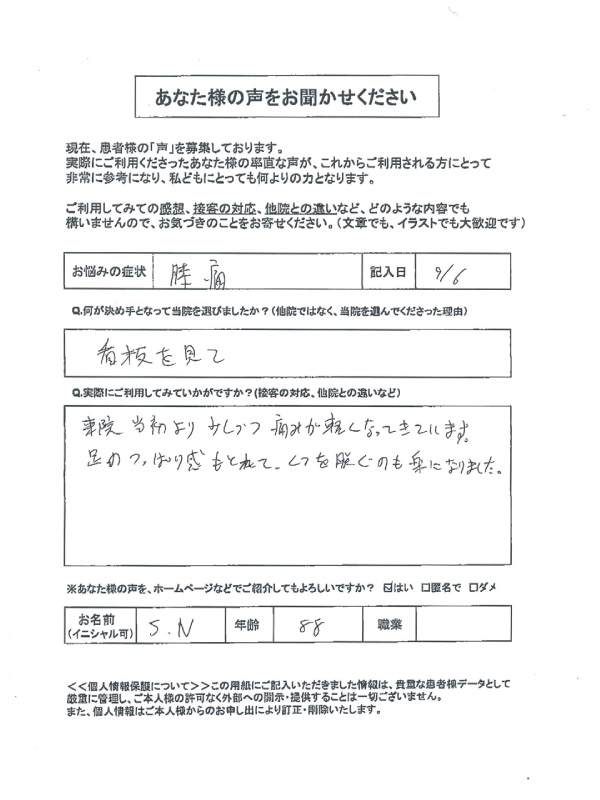 あなた様の声をお聞かせください
現在、患者様の「声」を募集しております。
実際にご利用くださったあなた様の率直な声が、これからご利用される方にとって
非常に参考になり、私どもにとっても何よりの力となります。
ご利用してみての感想、接客の対応、他院との違いなど、どのような内容でも
構いませんので、お気づきのことをお寄せください。（文章でも、イラストでも大歓迎です）
お悩みの症状 膝痛 記入日 9/6
Q.何が決め手となって当院を選びましたか？（他院ではなく、当院を選んでくださった理由）
看板を見て
Q.実際にご利用してみていかがですか？（接客の対応、他院との違いなど）
来院当初より少しづつ痛みが軽くなってきています。
足のつっぱり感もとれて、くつを脱ぐのも楽になりました。
※あなた様の声を、ホームページなどでご紹介してもよろしいですか？ ☑はい □匿名で □ダメ
お名前 S.N 年齢 88 職業
（イニシャル可）
＜＜個人情報保護について＞＞この用紙にご記入いただきました情報は、貴重な患者様データとして
厳重に管理し、ご本人様の許可なく外部への開示・提供することは一切ございません。
また、個人情報はご本人様からのお申し出により訂正・削除いたします。